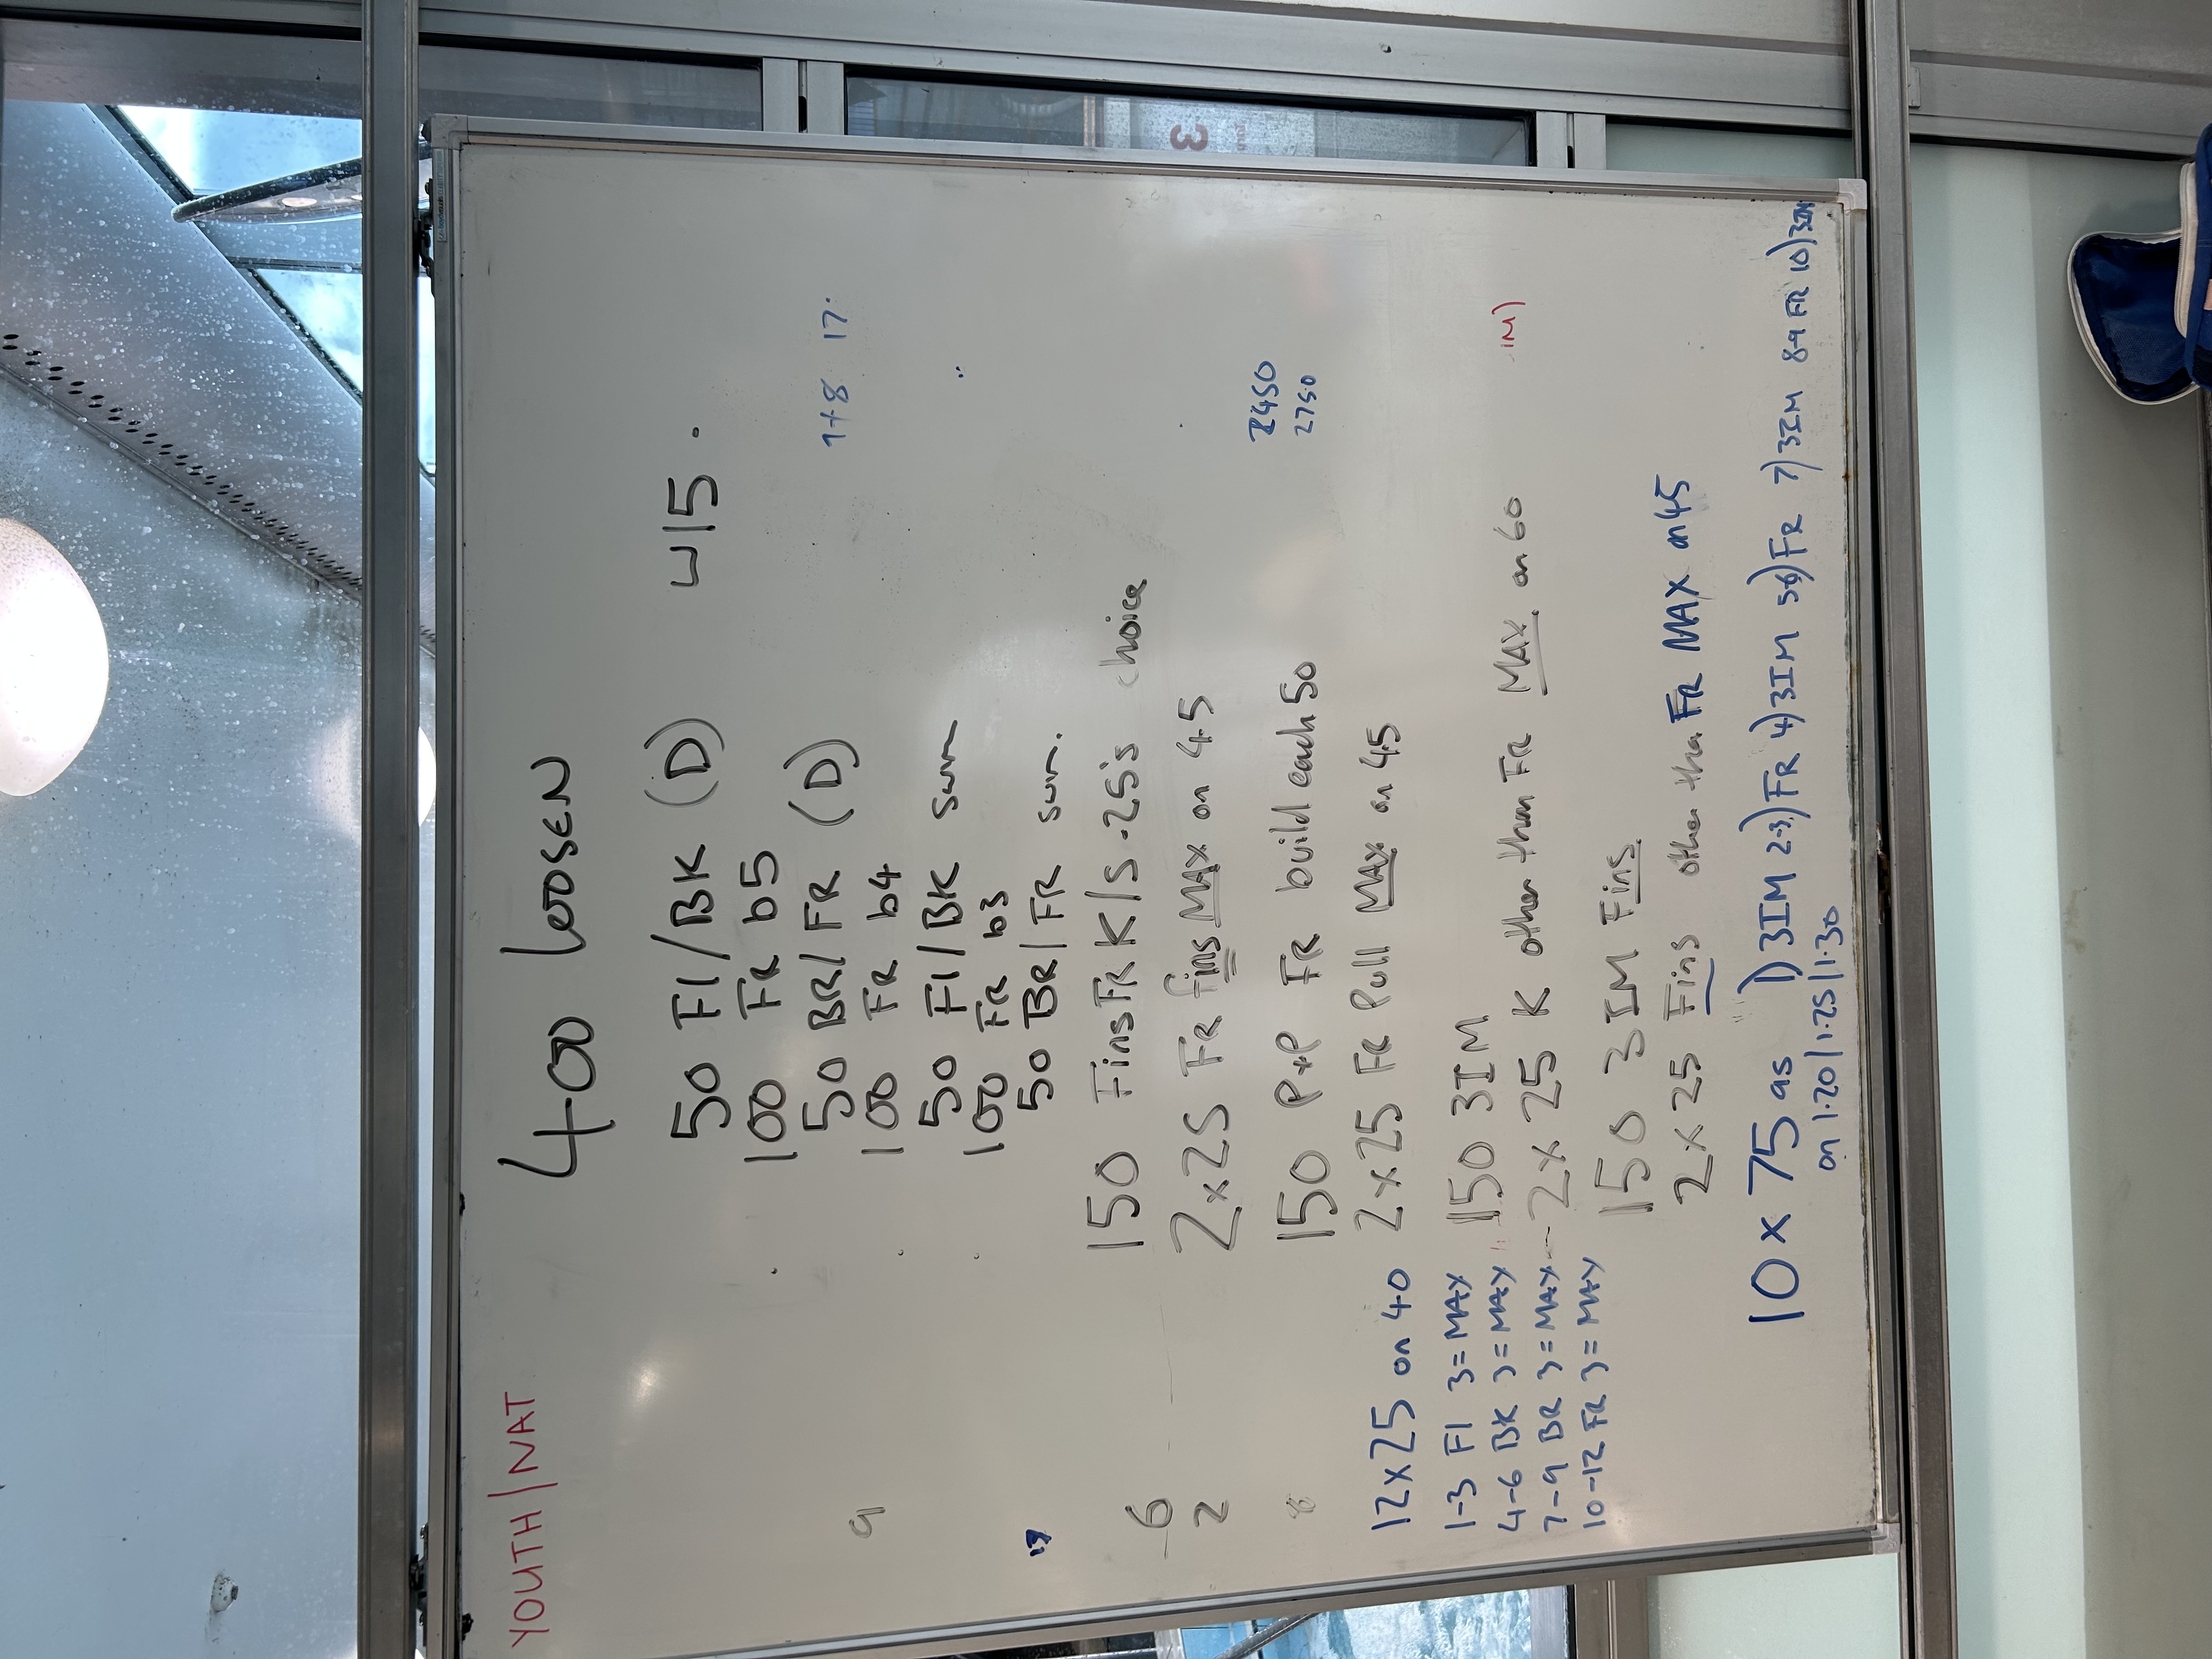 YOUTH | NAT
400 loosen
50 Fl/BK (D) ш15.
100 FR b5
50 BR/FR (D)
1+8 17.
100 FR b4
9
50 Fl/BK swm
100 FR b3
50 BR/FR swm.
150 Fins FR K/S .25's choice
6
2x25 FR fins MAX on 45
2
150 P+P FR build each 50
2450
2750
2x25 FR Pull MAX on 45
12x25 on 40
1-3 Fl 3=MAX
4-6 BK 3=MAX
7-9 BR 3=MAX
10-12 FR 3=MAX
150 3IM
IM)
2x25 K other than FR MAX on 60
150 3IM Fins
2x25 Fins other than FR MAX on 45
10x75 as 1)3IM 2-3)FR 4)3IM 5-6)FR 7)3IM 8-9 FR 10)3IM
on 1.20/1.25/1.30
3